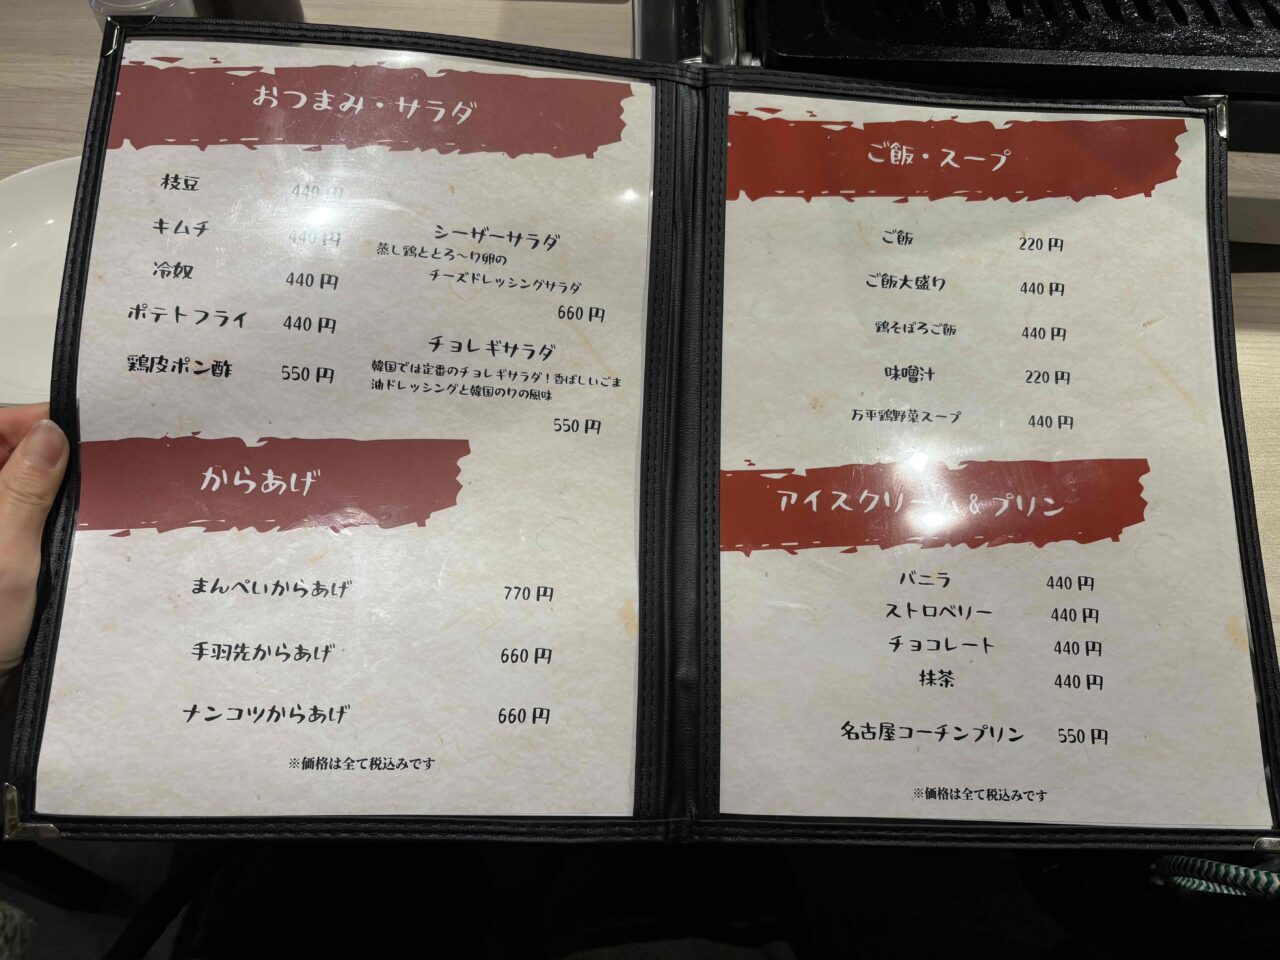 おつまみ・サラダ
枝豆 440円
キムチ 440円
冷奴 440円
ポテトフライ 440円
鶏皮ポン酢 550円
シーザーサラダ
蒸し鶏ととろ〜り卵の
チーズドレッシングサラダ
660円
チョレギサラダ
韓国では定番のチョレギサラダ！香ばしいごま
油ドレッシングと韓国のりの風味
550円
からあげ
まんぺいからあげ 770円
手羽先からあげ 660円
ナンコツからあげ 660円
※価格は全て税込みです
ご飯・スープ
ご飯 220円
ご飯大盛り 440円
鶏そぼろご飯 440円
味噌汁 220円
万平鶏野菜スープ 440円
アイスクリーム&プリン
バニラ 440円
ストロベリー 440円
チョコレート 440円
抹茶 440円
名古屋コーチンプリン 550円
※価格は全て税込みです